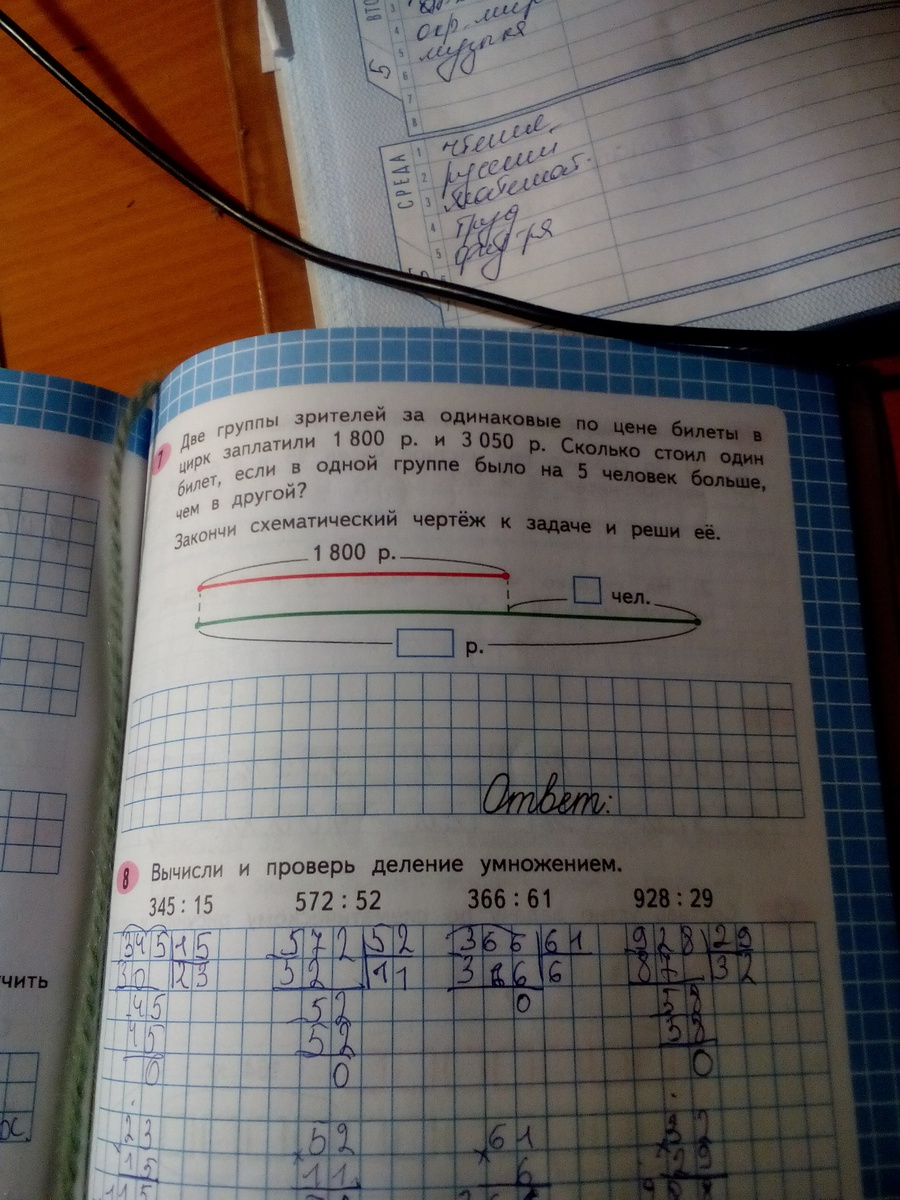 ВТО
3
4
5
6
7
8
5
окр. мир
музыка
СРЕДА
1
2
3
4
5
чтение
русский
математ.
труд
физ-ра
7 Две группы зрителей за одинаковые по цене билеты в
цирк заплатили 1 800 р. и 3 050 р. Сколько стоил один
билет, если в одной группе было на 5 человек больше,
чем в другой?
Закончи схематический чертёж к задаче и реши её.
1 800 р.
чел.
р.
Ответ:
8 Вычисли и проверь деление умножением.
345 : 15 572 : 52 366 : 61 928 : 29
345 15 572 52 366 61 928 29
30 23 52 11 366 6 87 32
45 52 0 58
45 52 58
0 0 0
23 52 61
15 11 6 29
115
чить